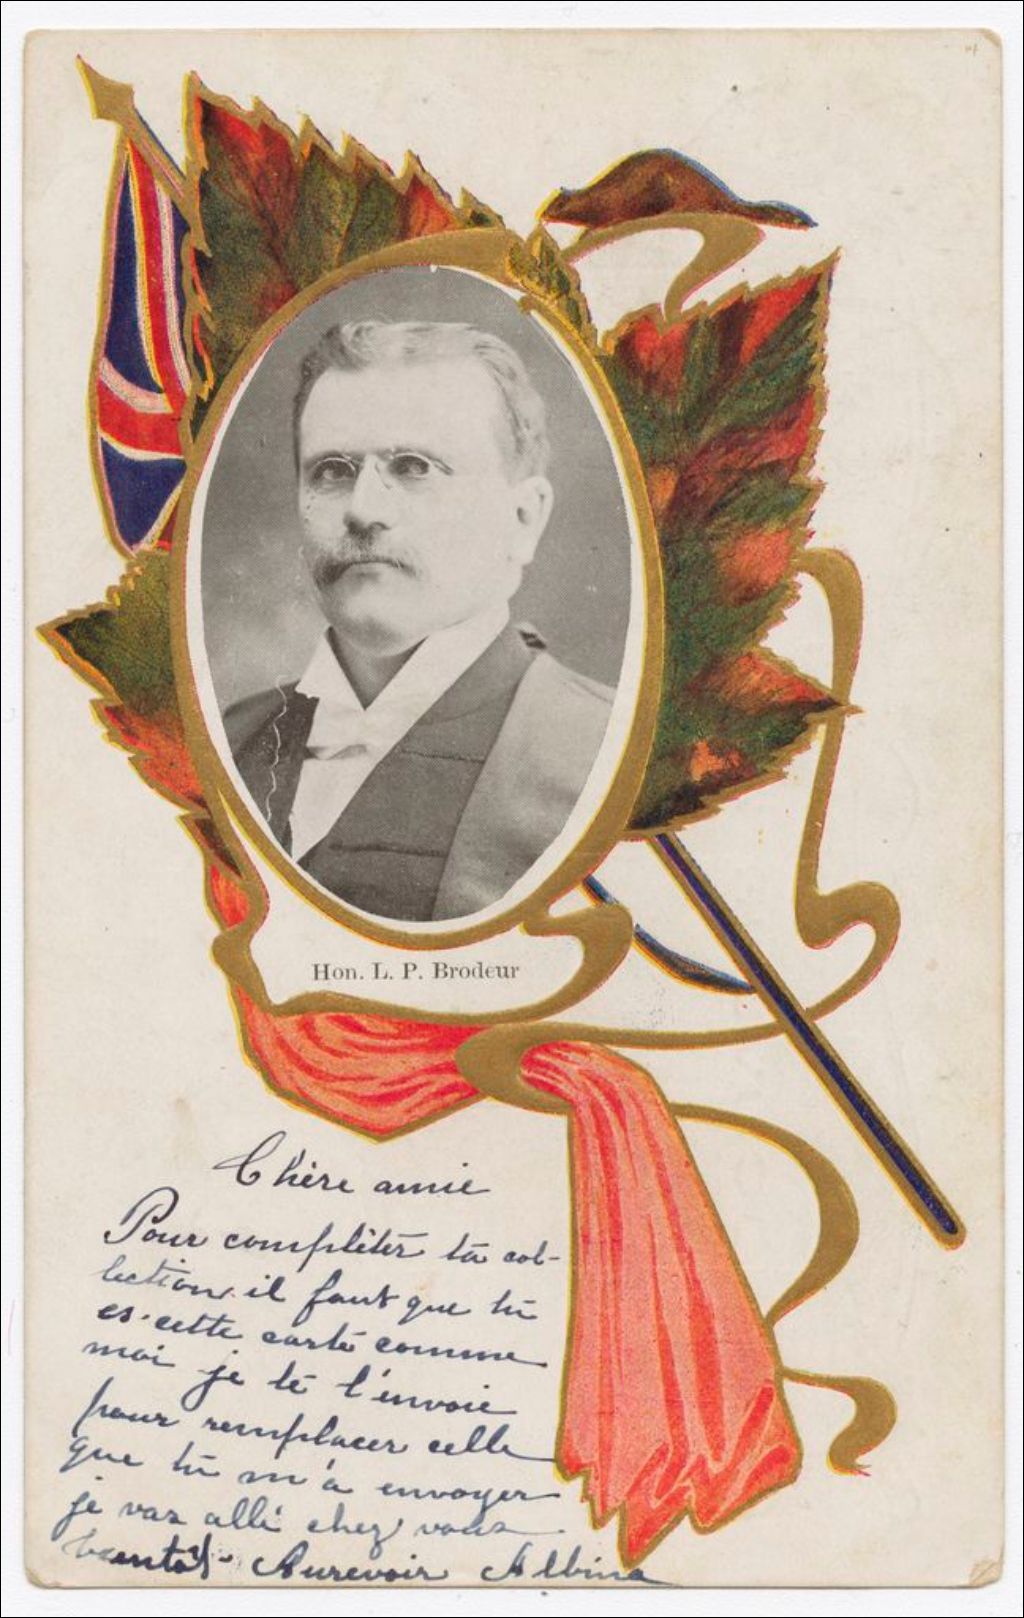 Hon. L. P. Brodeur
Chère amie
Pour complèter ta col-
lection il faut que tu
es cette carte comme
moi je te l'envoie
pour remplacer celle
que tu m'a envoyer
je vas allé chez vous
bientôt Aurevoir Albina